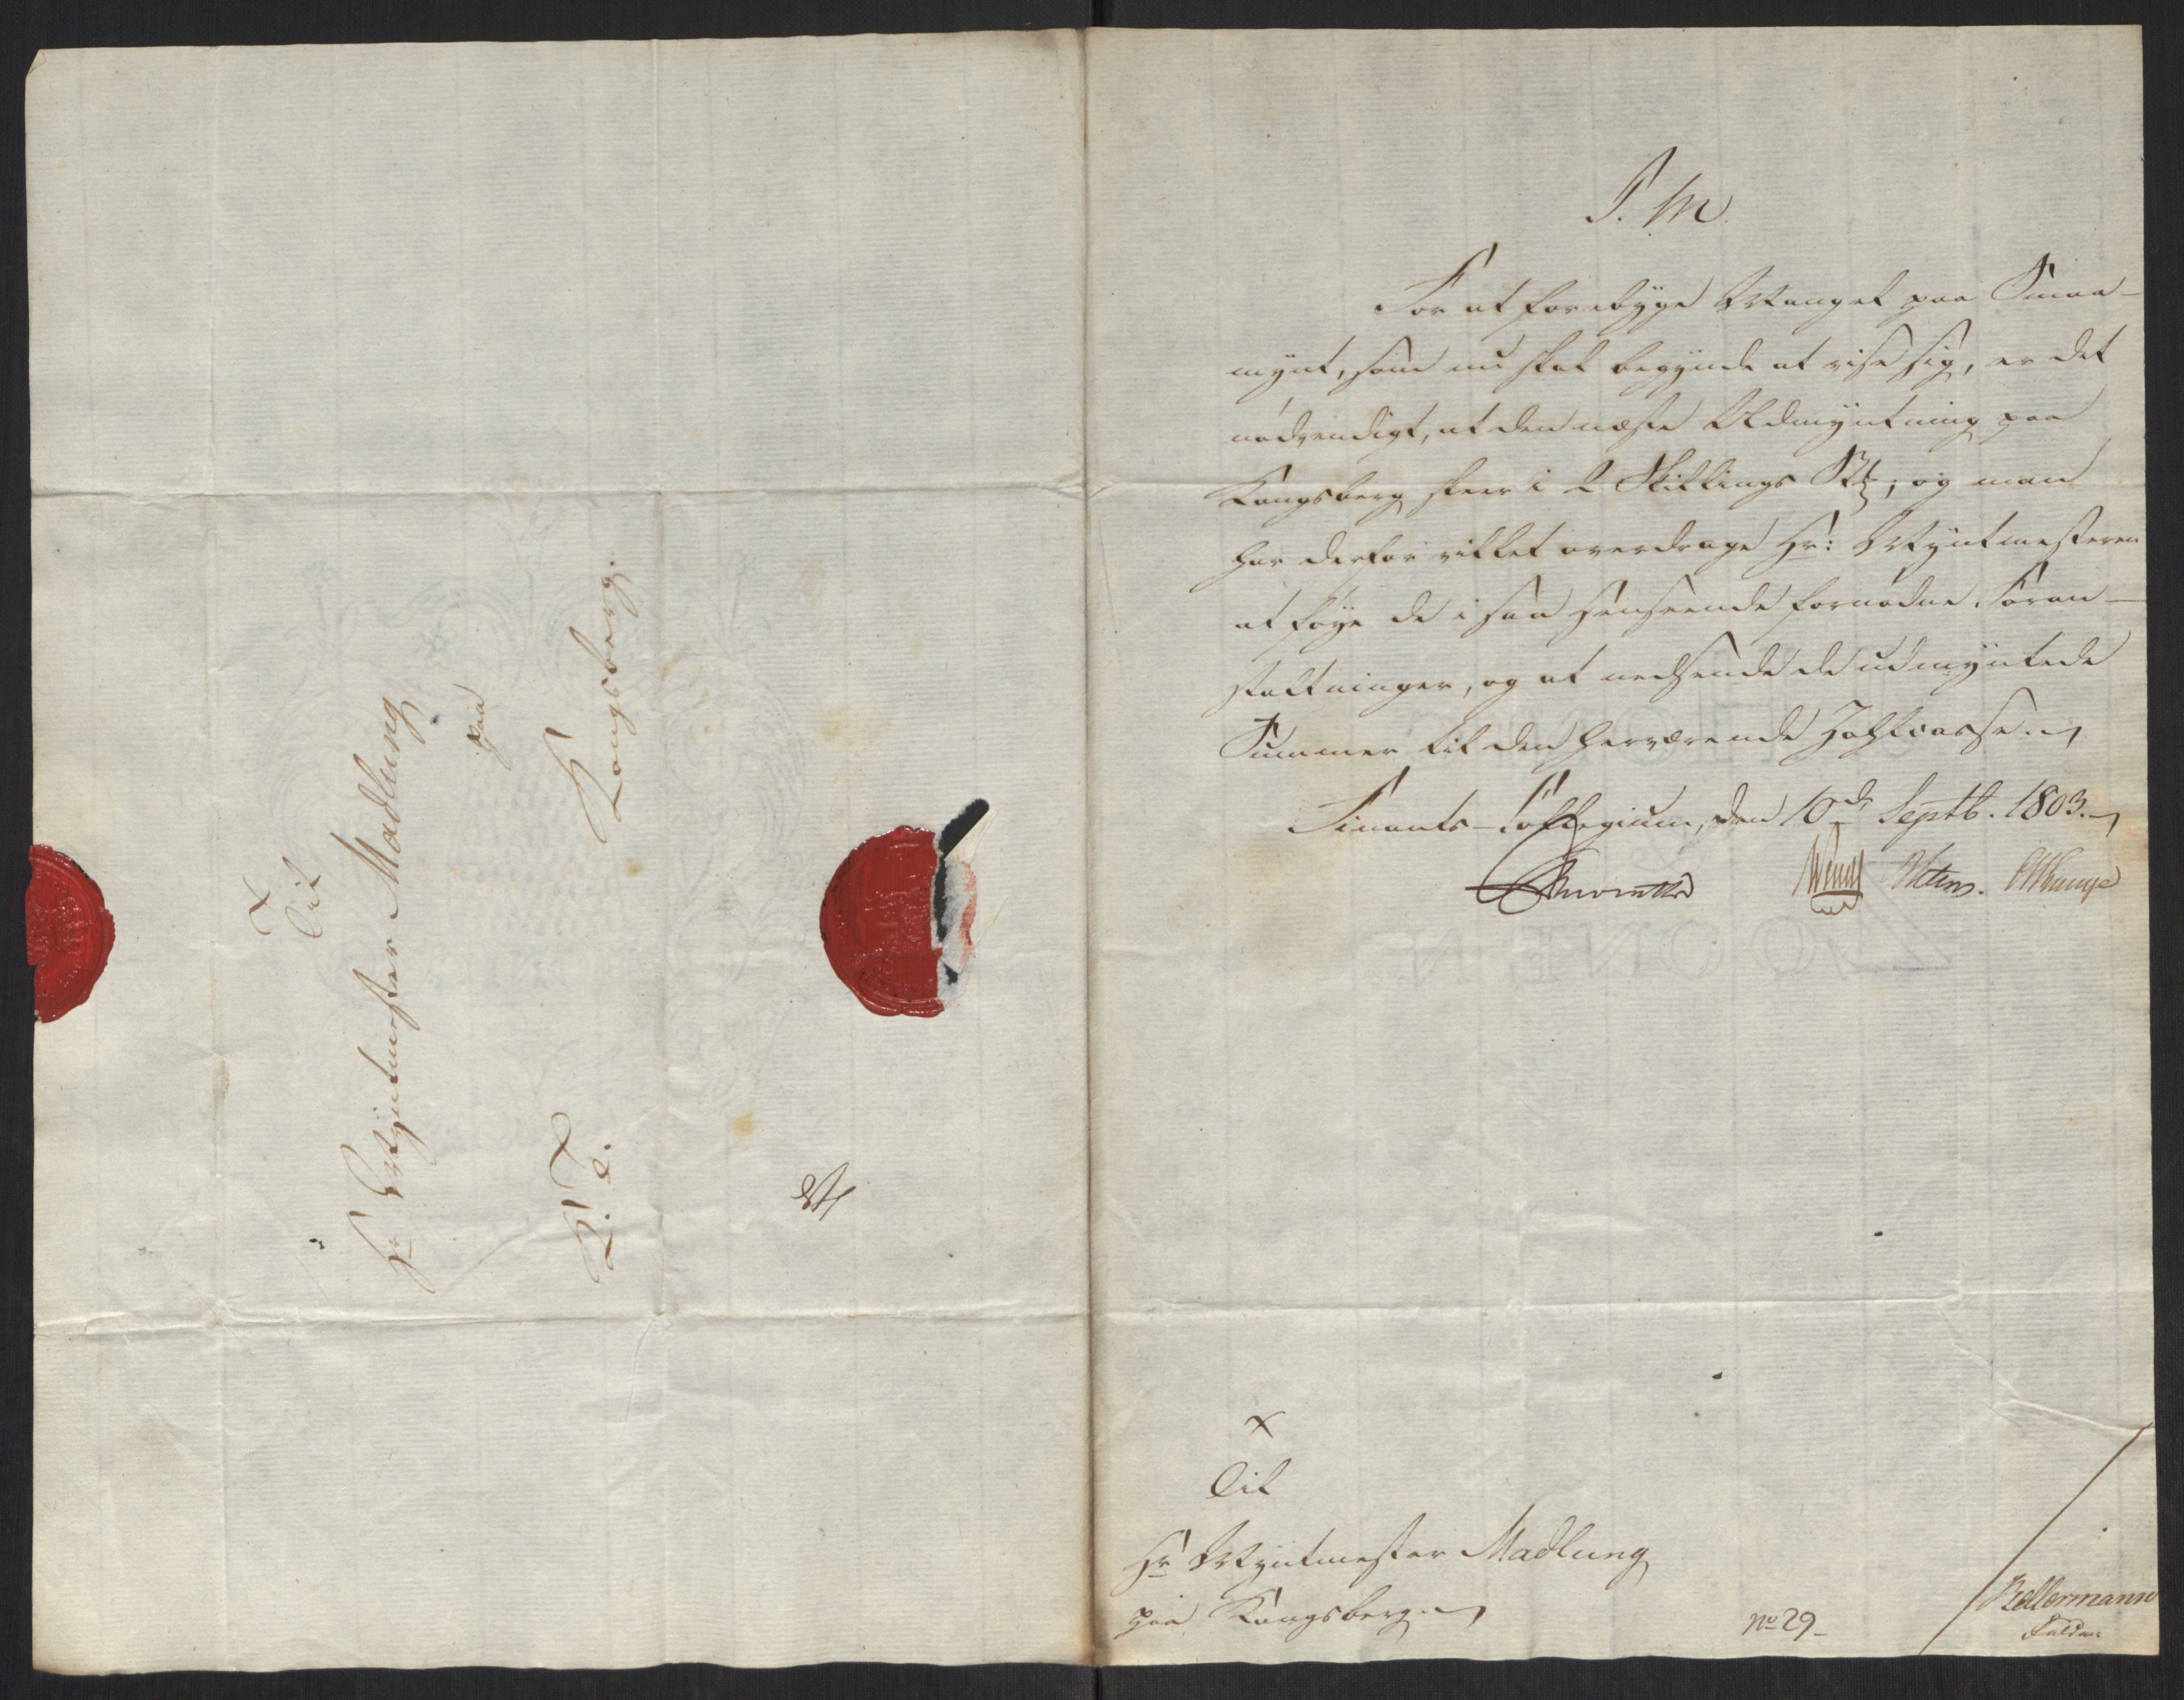 Til
Hr Myntmester Madlung
paa
Kongsberg.
K. T.
P. M.
For at forebygge Mangel paa Smaa-
mynt, som nu skal begynde at vise sig, er det
nødvendigt, at den næste Udmyntning paa
Kongsberg skeer i 2 Skillings St; og man
har derfor villet overdrage Hr: Myntmesteren
at føye de i saa Henseende fornødne Foran-
staltninger, og at nedsende de udmyntede
Summer til den herværende Zahlcasse.
Finants-Collegium, den 10de Septb. 1803.
Til
Hr Myntmester Madlung
paa Kongsberg.
No 29
Kellermann